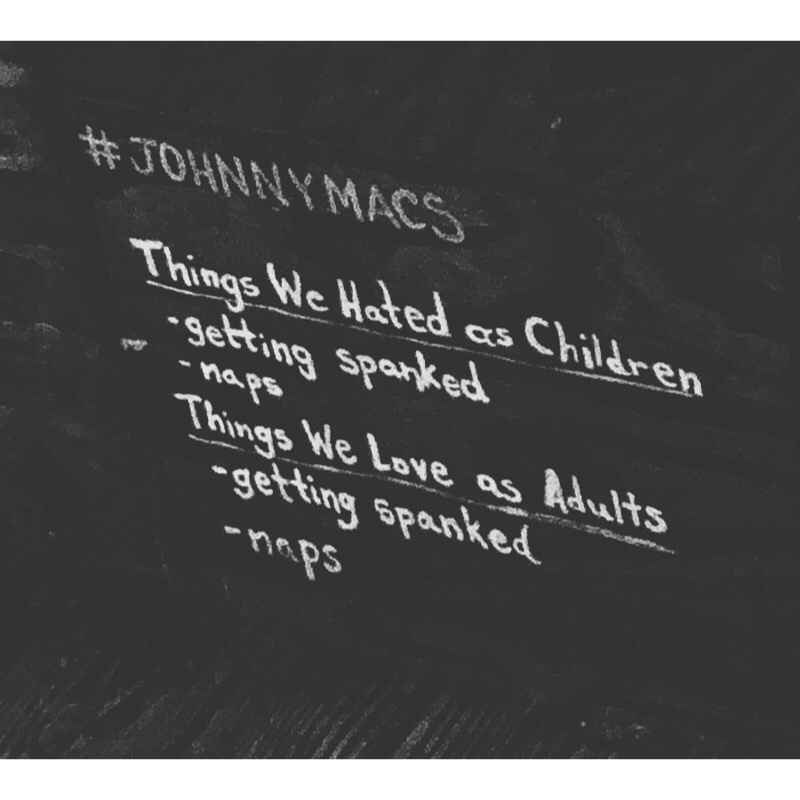 #JOHNNYMACS
Things We Hated as Children
-getting spanked
-naps
Things We Love as Adults
-getting spanked
-naps